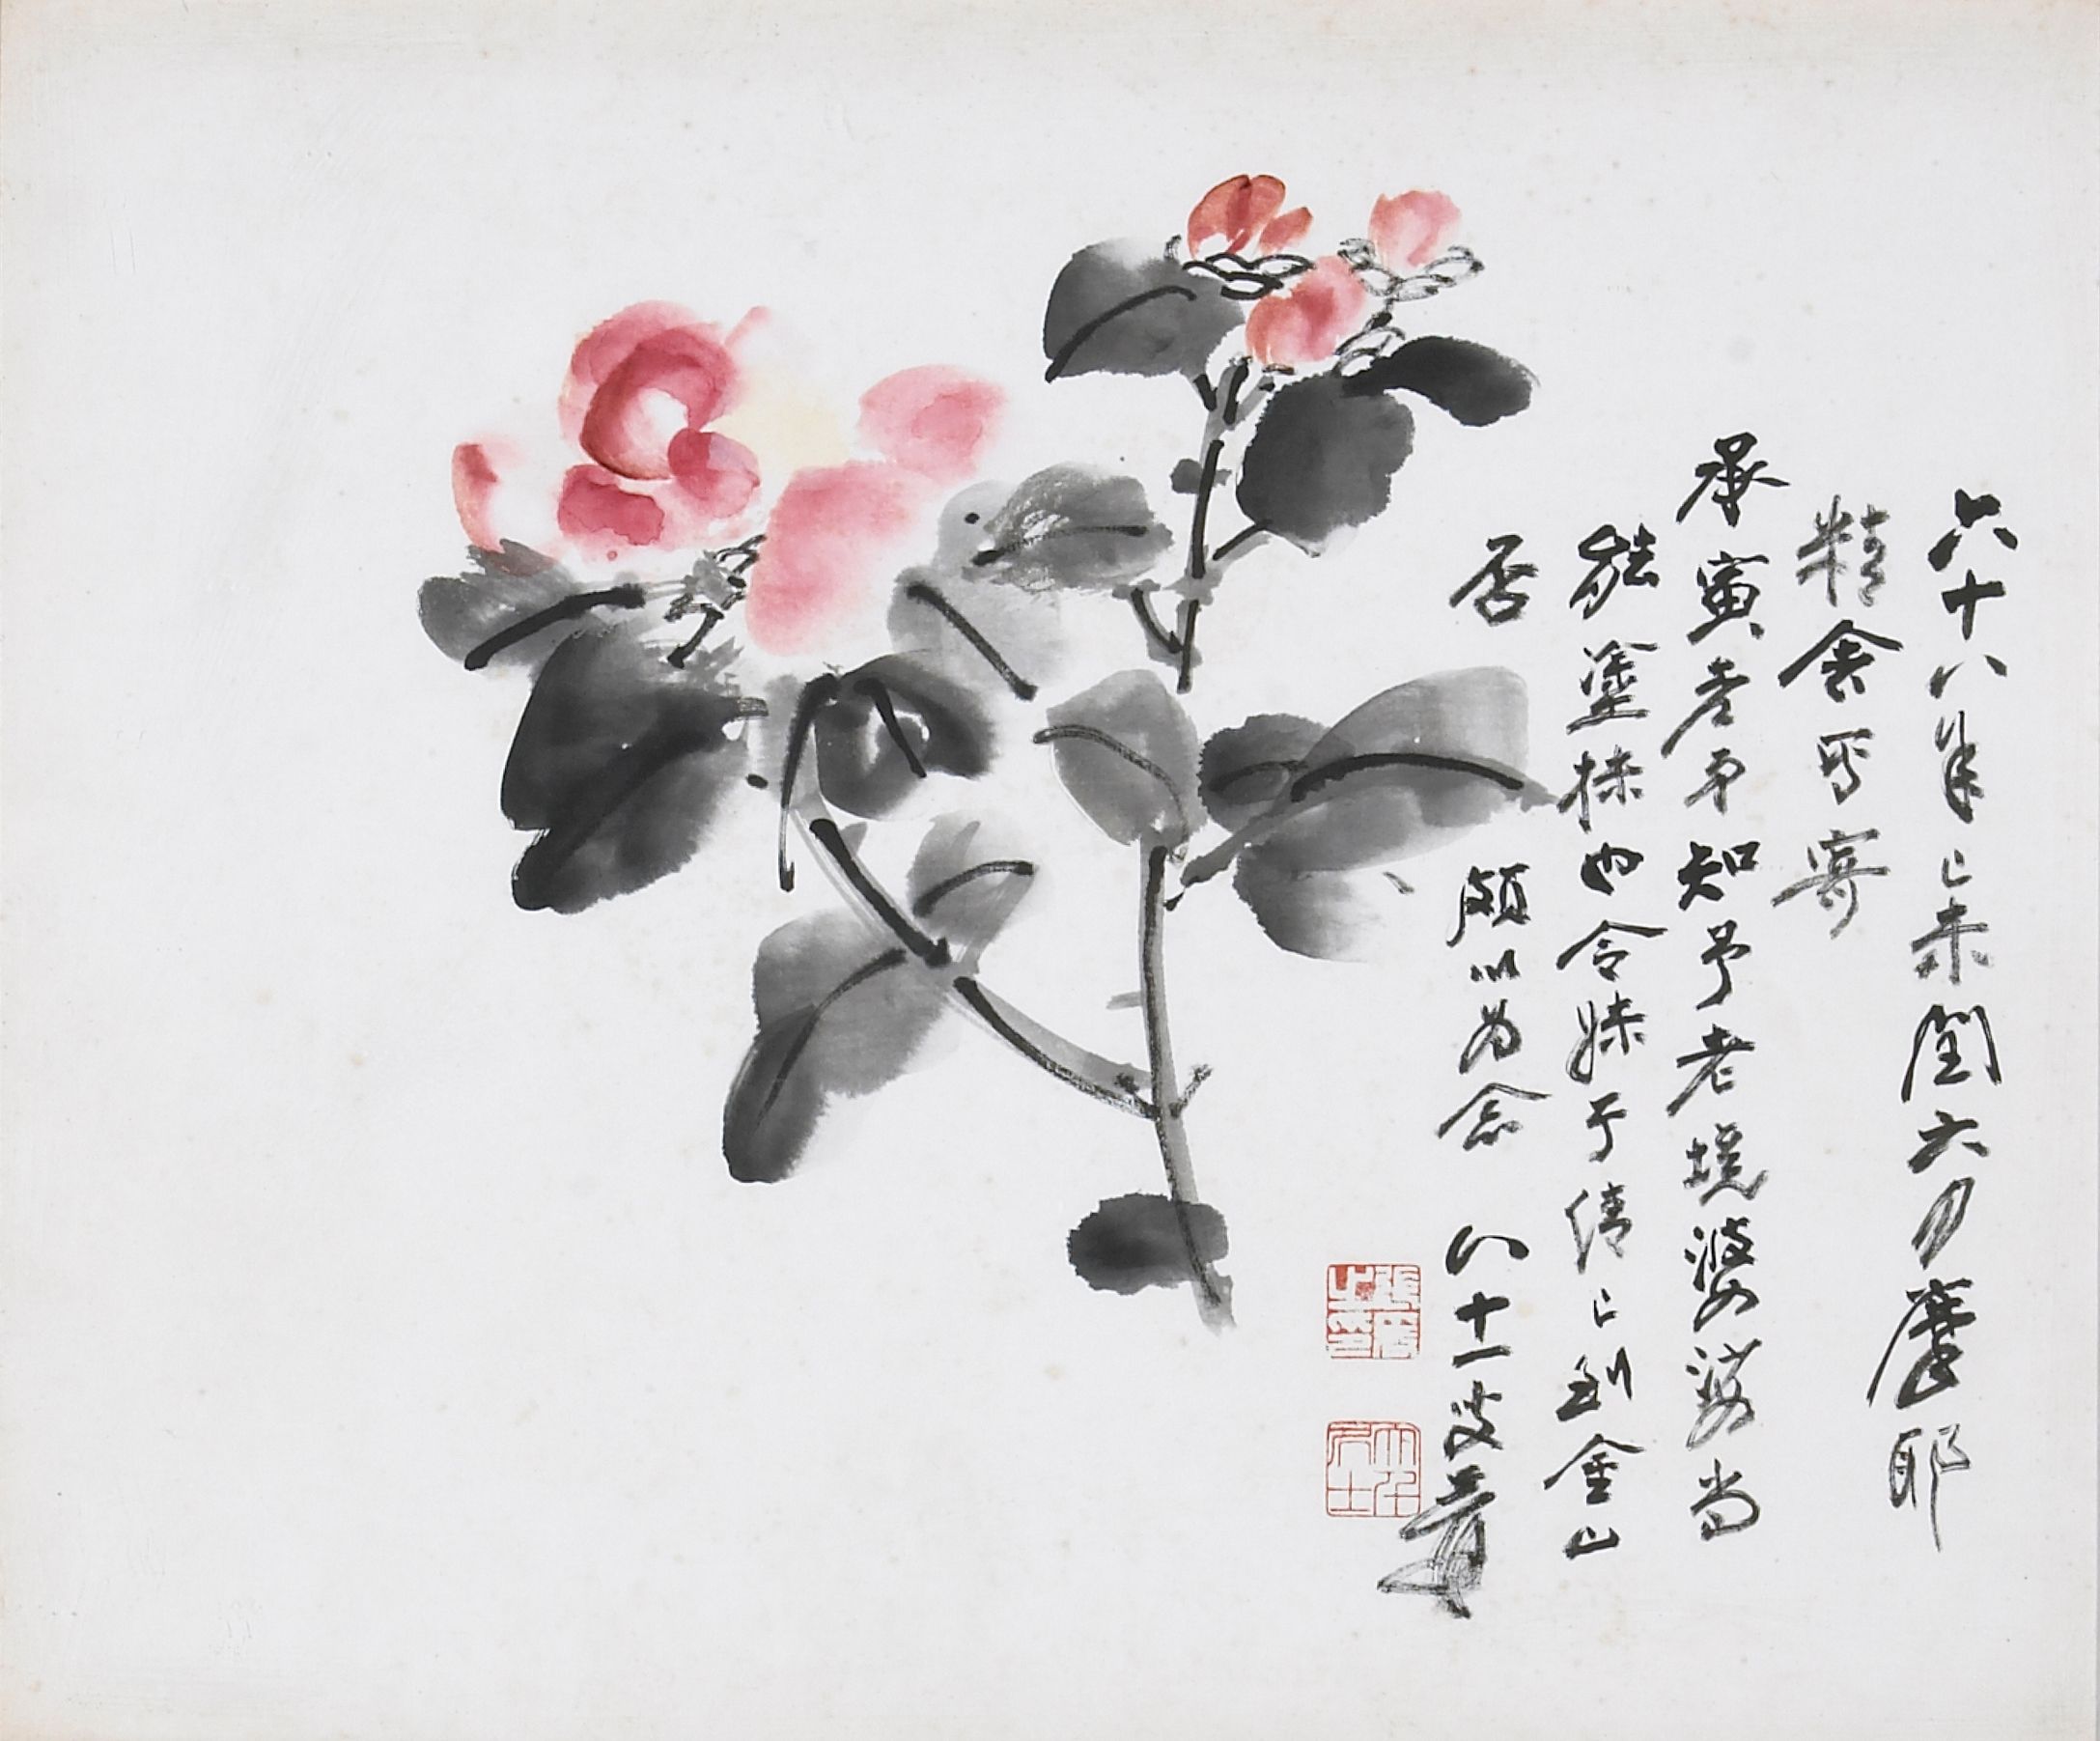 六十八年己未閏六月摩耶
精舍寫寄
承寅老弟知予老境婆娑尚
能塗抹也令妹于倩已到金山
否 頗以為念 八十一叟爰
張爰之印
大千居士